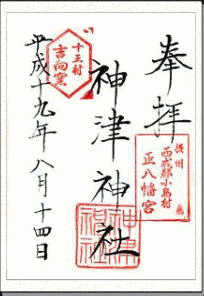 奉拝
摂州
西成郡小島村
正八幡宮
神津神社
神津
神社
十三村
吉向窯
平成十九年八月十四日